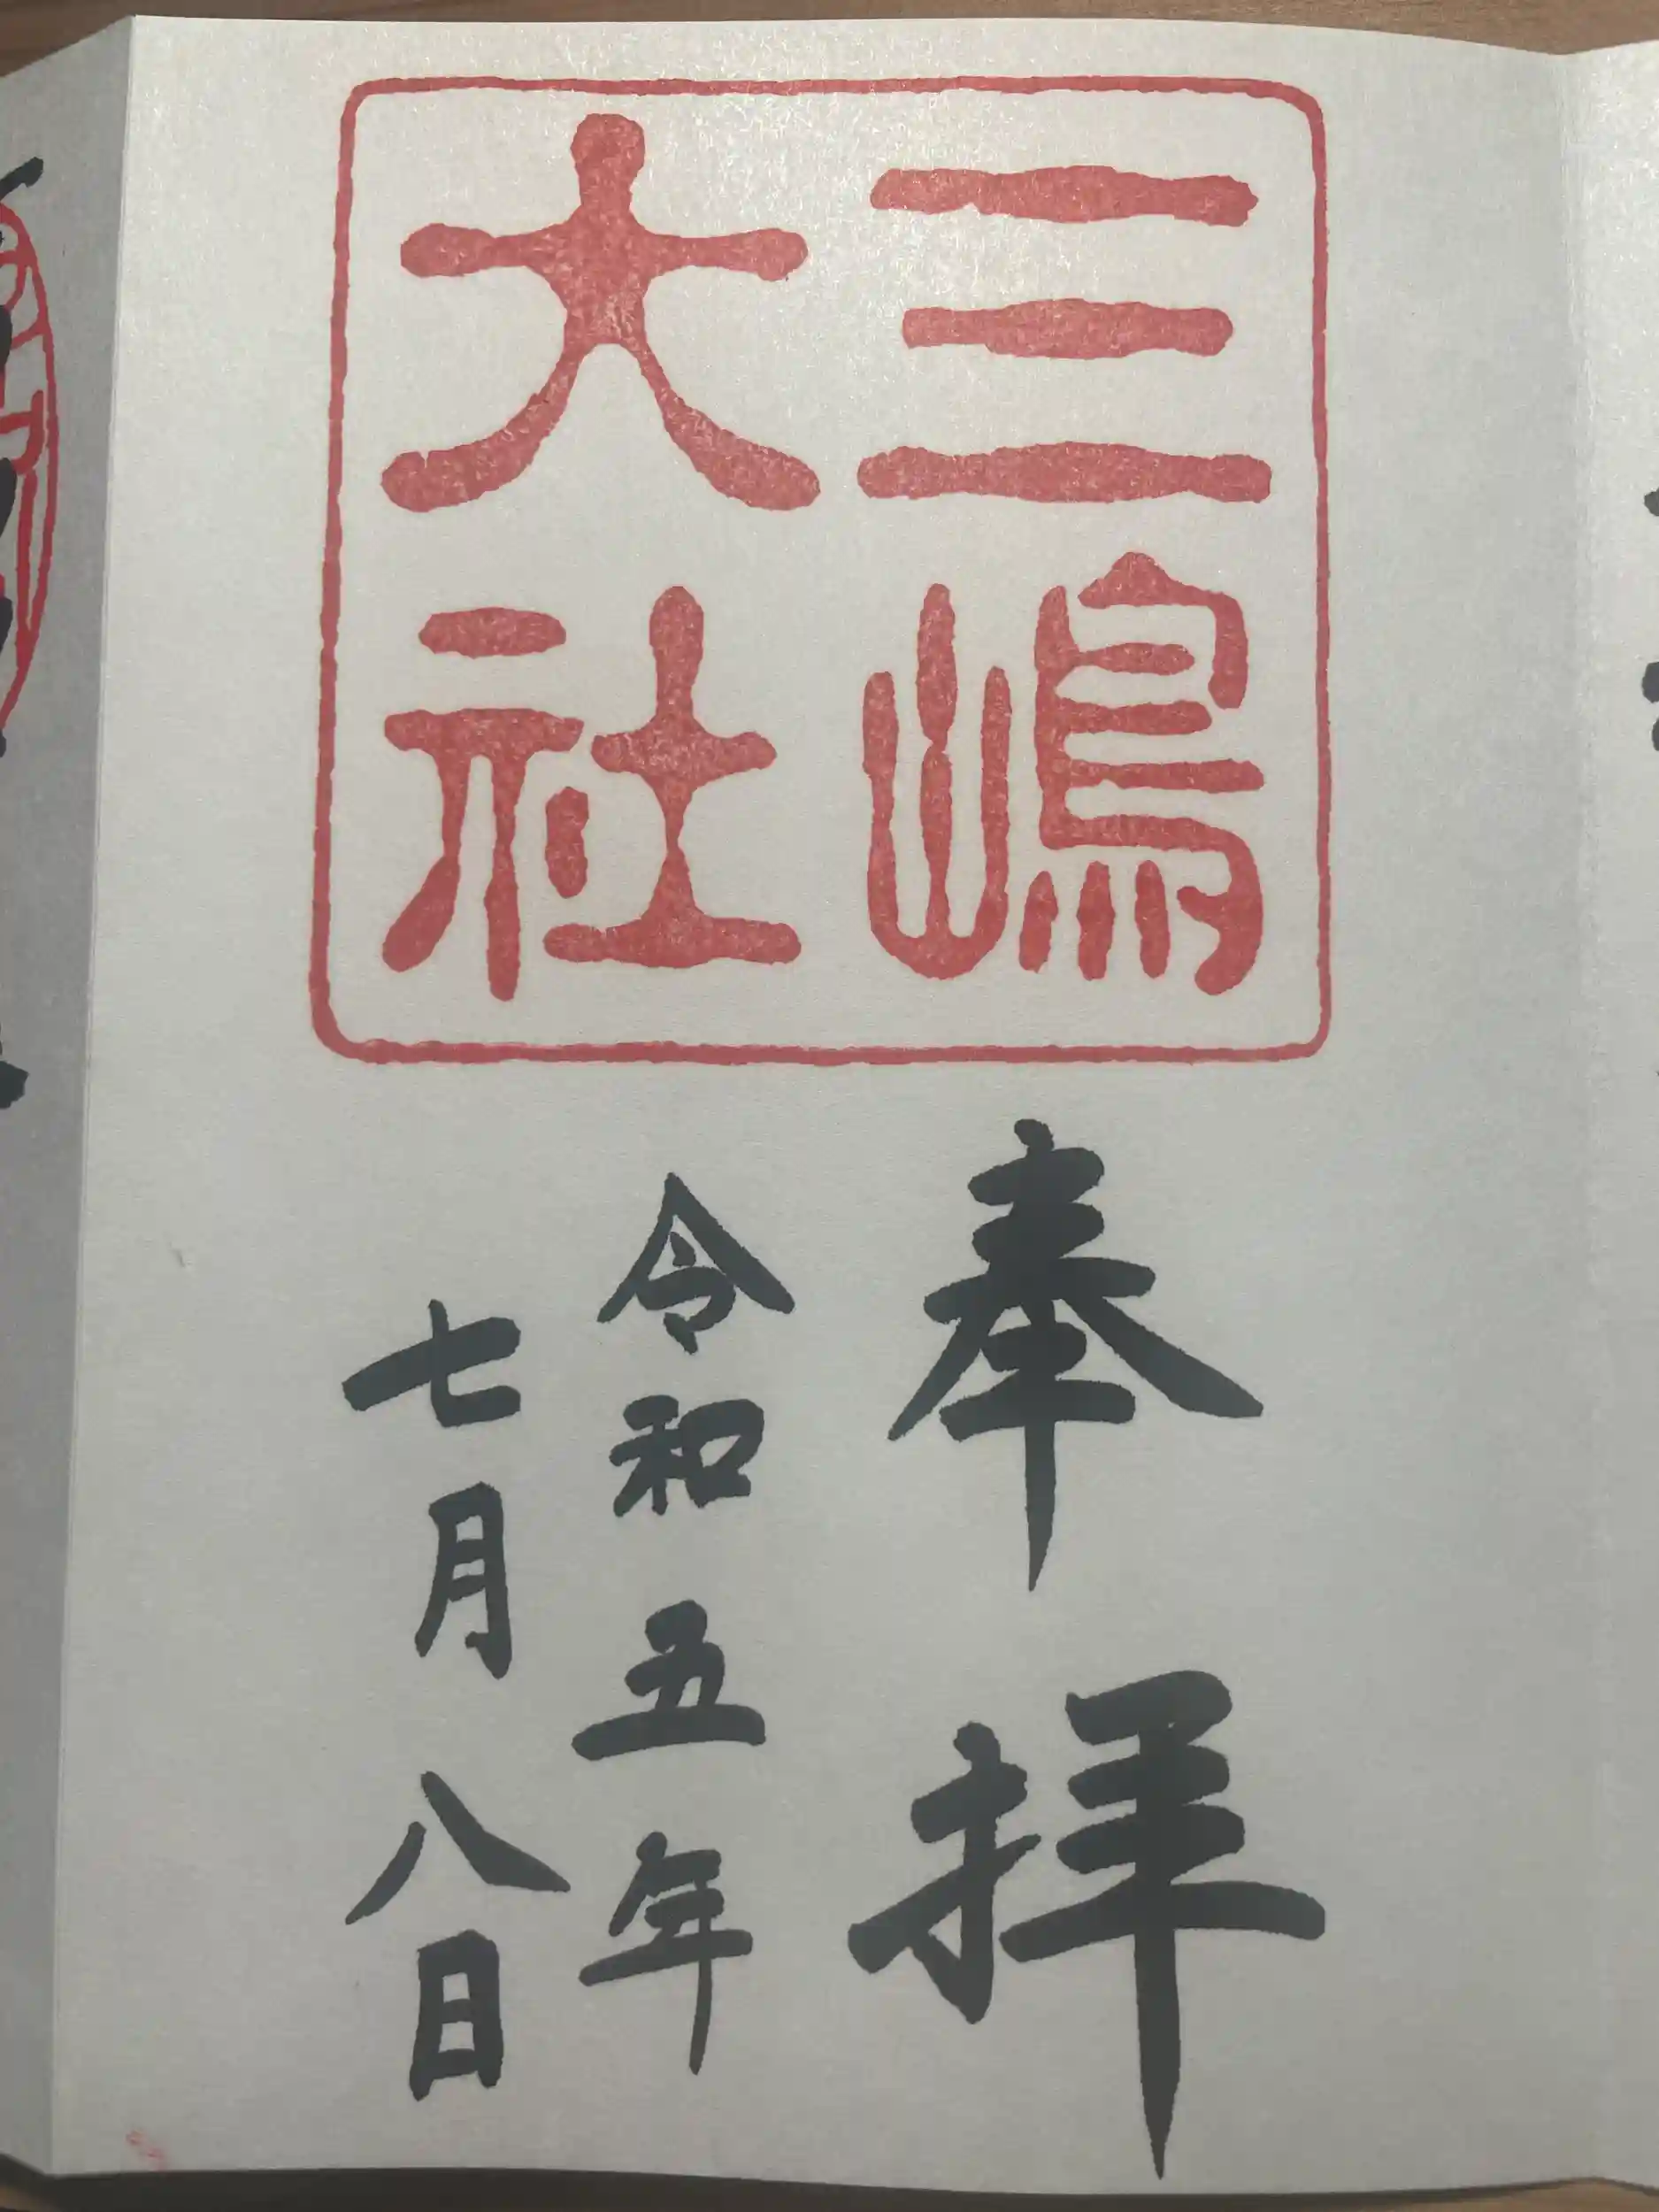 三嶋
大社
奉拝
令和五年
七月八日